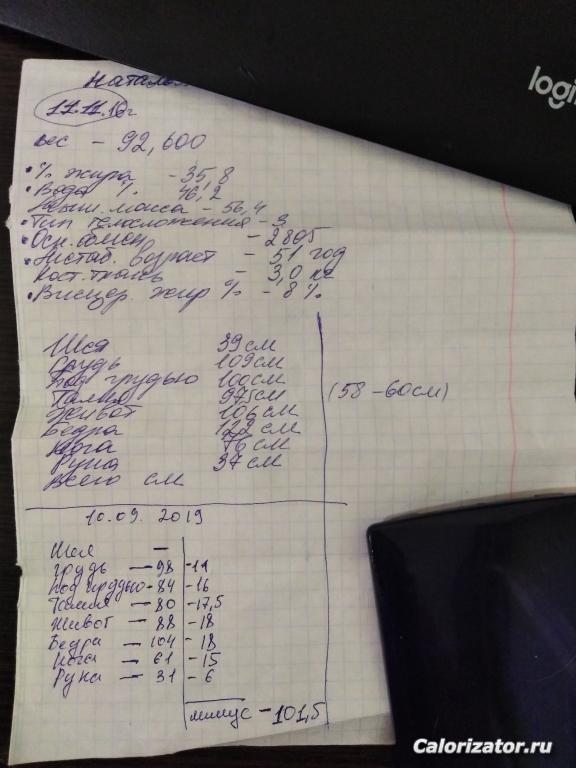 Наталья
11.11.18г
вес – 92,600
• % жира – 35,8
• Вода % 46,2
Мыш. масса – 56,4
• Тип телосложения – 3
• Осн. обмен – 2805
• Метаб. возраст – 51 год
Кост. ткань – 3,0 кг
• Висцер. жир % – 8 %
Шея 39 см
Грудь 109 см
Под грудью 100 см
Талия 97,5 см
(58 – 60 см)
Живот 106 см
Бедра 122 см
Нога 76 см
Рука 37 см
Всего см
10.09. 2019
Шея –
Грудь – 98 – 11
Под грудью – 84 – 16
Талия – 80 – 17,5
Живот – 88 – 18
Бедра – 104 – 18
Нога – 61 – 15
Рука – 31 – 6
минус – 101,5
logi
Calorizator.ru